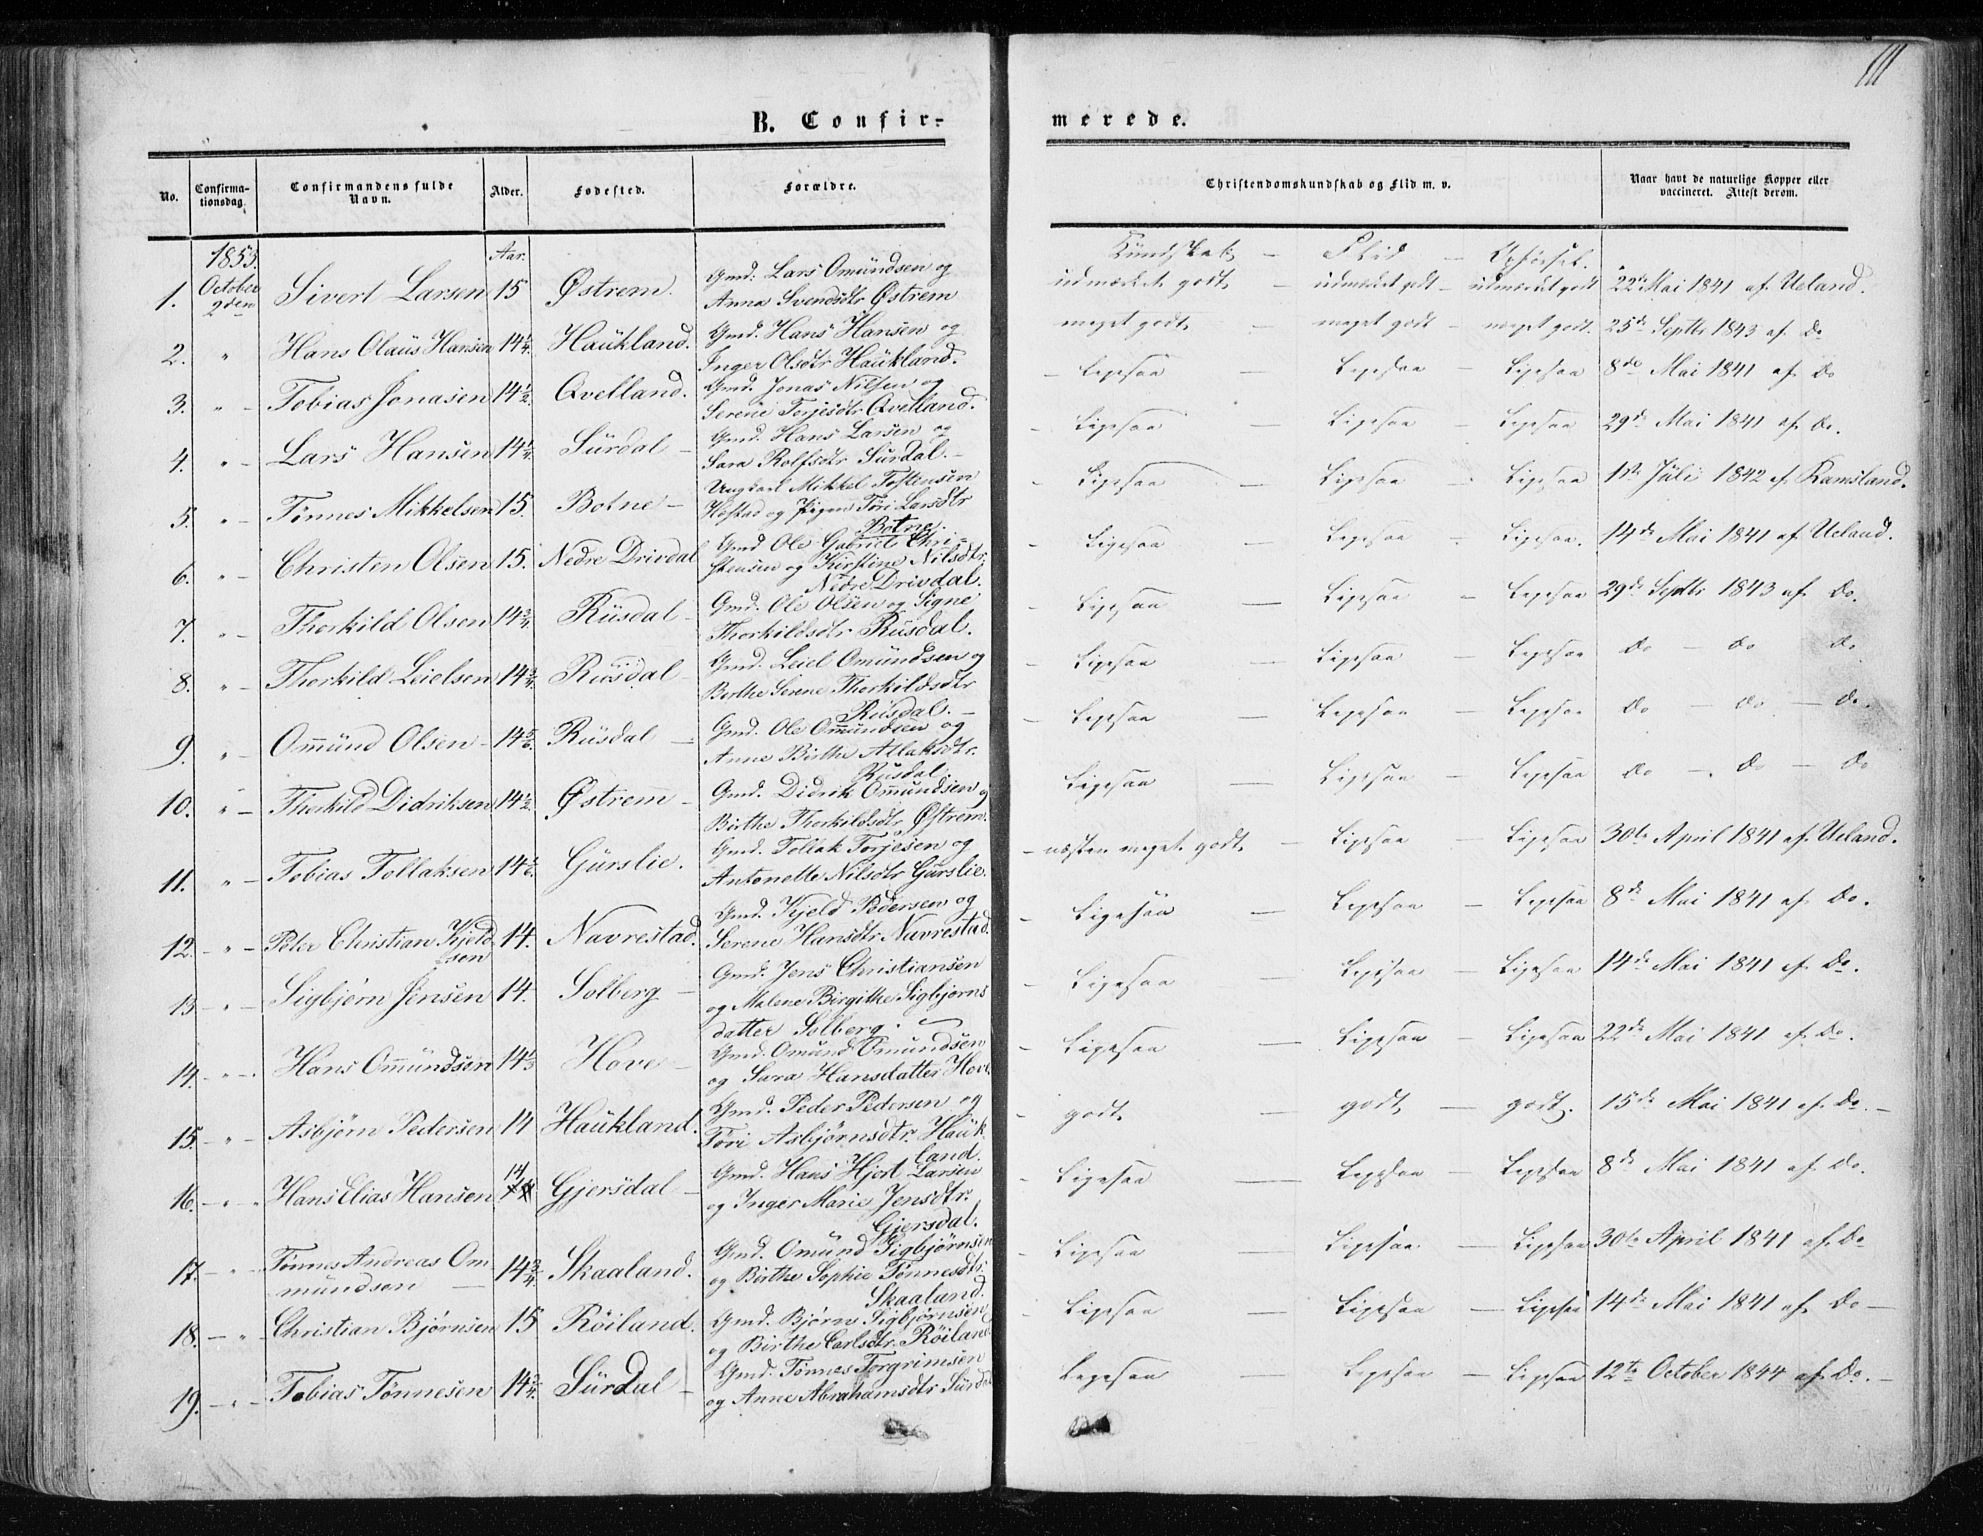 111
B. Confir-
merede.
No.
Confirma-
tionsdag.
Confirmandens fulde
Navn.
Alder.
Fødested.
Forældre.
Christendomskundskab og Flid m. v.
Naar havt de naturlige Kopper eller
vaccineret. Attest derom.
1853.
Aar.
Kundskab – Flid – Opførsel.
1. October 2den Sivert Larsen 15 Østrem. Gmd. Lars Omundsen og
Anna Svendsdtr Østrem
udmærket godt – udmærket godt – udmærket godt 22de Mai 1841 af Ueland.
2. " Hans Olaus Hansen 14 1/4. Haukland. Gmd. Hans Hansen og
Inger Olsdtr Haukland.
meget godt – meget godt – meget godt. 25de Septbr 1843 af Do
3. " – Tobias Jonasen 14 1/2. Qvelland. Gmd. Jonas Nilsen og
Serene Torjesdtr Qvelland.
– Ligesaa – Ligesaa – Ligesaa 8de Mai 1841 af Do
4. " – Lars Hansen 14 1/4. Surdal – Gmd. Hans Larsen og
Sara Rolfsdtr Surdal. –
– Ligesaa – Ligesaa – Ligesaa 29de Mai 1841 af Do.
5. " – Tønnes Mikkelsen 15. Botne – Ungkarl Mikkel Tostensen
Hestad og Pigen Tøri Larsdtr
Botne.
– Ligesaa – Ligesaa – Ligesaa 1ste Juli 1842 af Ramsland.
6. " – Christen Olsen 15. Nedre Drivdal Gmd Ole Gabriel Chri-
stensen og Kirstine Nilsdtr.
Nedre Drivdal.
– Ligesaa – Ligesaa – Ligesaa. 14de Mai 1841 af Ueland.
7. " – Thorkild Olsen 14 3/4. Rusdal – Gmd. Ole Olsen og Signe
Thorkildsdtr Rusdal.
– Ligesaa – Ligesaa – Ligesaa 29de Septbr 1843 af Do.
8. " – Thorkild Leielsen 14 3/4. Rusdal – Gmd. Leiel Omundsen og
Berthe Serene Thorkildsdtr
Rusdal. –
– Ligesaa – Ligesaa – Ligesaa Do – Do – Do
9. " – Omund Olsen – 14 5/6. Rusdal – Gmd. Ole Omundsen og
Anne Birthe Atlaksdtr.
Rusdal
– Ligesaa – Ligesaa – Ligesaa Do – Do – Do.
10. " – Thorkild Didriksen 14 1/2. Østrem – Gmd. Didrik Omundsen og
Birthe Thorkildsdtr Østrem.
– Ligesaa – Ligesaa – Ligesaa Do – Do – Do
11. " – Tobias Tollaksen 14 1/6. Gurslie. Gmd. Tollak Torjesen og
Antonette Nilsdtr Gurslie.
– næsten meget godt – Ligesaa – Ligesaa 30te April 1841 af Ueland.
12. – " – Peter Christian Kjeld-
sen 14. Navrestad. Gmd. Kjeld Pedersen og
Serene Hansdtr Navrestad.
– Ligesaa – Ligesaa – Ligesaa 8de Mai 1841 af Do.
13 – " – Sigbjørn Jensen 14. Solberg – Gmd. Jens Christiansen
og Malene Birgithe Sigbjørns
datter Solberg.
– Ligesaa – Ligesaa – Ligesaa 14de Mai 1841 af Do.
14. – " – Hans Omundsen 14 1/3 Hove – Gmd. Omund Omundsen
og Sara Hansdatter Hove.
– Ligesaa – Ligesaa – Ligesaa 22de Mai 1841 af Do.
15. – " – Asbjørn Pedersen 14 Haukland. Gmd. Peder Pedersen og
Tøri Asbjørnsdtr. Hauk-
land.
– godt, – godt, – godt. 15de Mai 1841 af Do. –
16. – " – Hans Elias Hansen 14 Gjersdal – Gmd. Hans Hjort Larsen
og Inger Marie Jensdtr.
Gjersdal.
– Ligesaa – Ligesaa – Ligesaa 8de Mai 1841 af Do.
17. – " – Tønnes Andreas Om-
mundsen – 14 3/4. Skaaland. Gmd. Omund Sigbjørnsen
og Birthe Sophie Tønnesdtr.
Skaaland.
– Ligesaa – Ligesaa – Ligesaa 30te April 1841 af Do
18. – " – Christian Bjørnsen 15 Røiland. Gmd. Bjørn Sigbjørnsen
og Birthe Carlsdtr. Røiland
– Ligesaa – Ligesaa – Ligesaa 14de Mai 1841 af Do –
19. – " – Tobias Tønnesen 14 3/4. Surdal – Gmd. Tønnes Torgrimsen
og Anne Abrahamsdtr Surdal
Ligesaa – Ligesaa – Ligesaa 12te October 1844 af Do. –